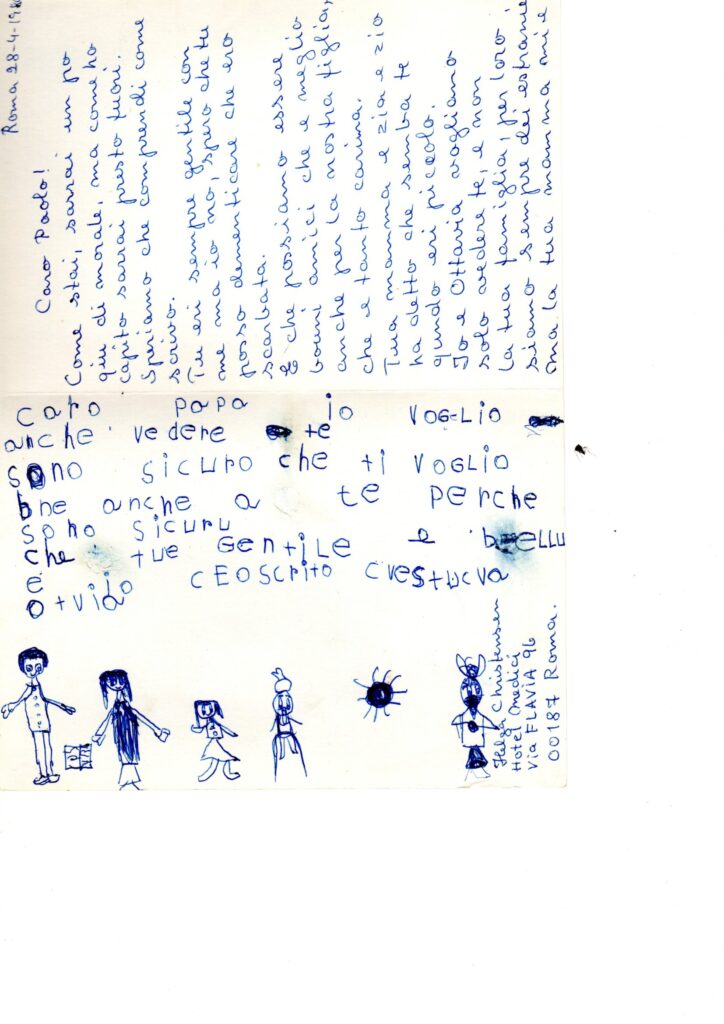 Roma 28-4-19
Caro Paolo!
Come stai, sarrai un po
giu di morale, ma come ho
capito sarrai presto fuori.
Speriamo che comprendi come
scrivo.
Tu eri sempre gentile con
me ma io no, spero che tu
posso dementicare che ero
scarbata.
E che possiamo essere
bouni amici che e meglio
anche per la nostra figlia,
che e tanto carina.
Tua mamma e zia e zio
ha detto che semba te
qundo eri piccolo.
Io e Ottavia vogliamo
solo vedere te, e non
la tua famiglia, per loro
siamo sempre dei estranei
ma la tua mamma mi e
caro papa io VOGLIO
anche vedere te
sono sicuro che ti VOGLIO
bne anche a te perche
sono sicuru
che tue GentiLe e bellu
e
otvia CEOSCRITO
Helga Christensen
Hotel Medici
Via FLAVIA 96
00187 Roma.